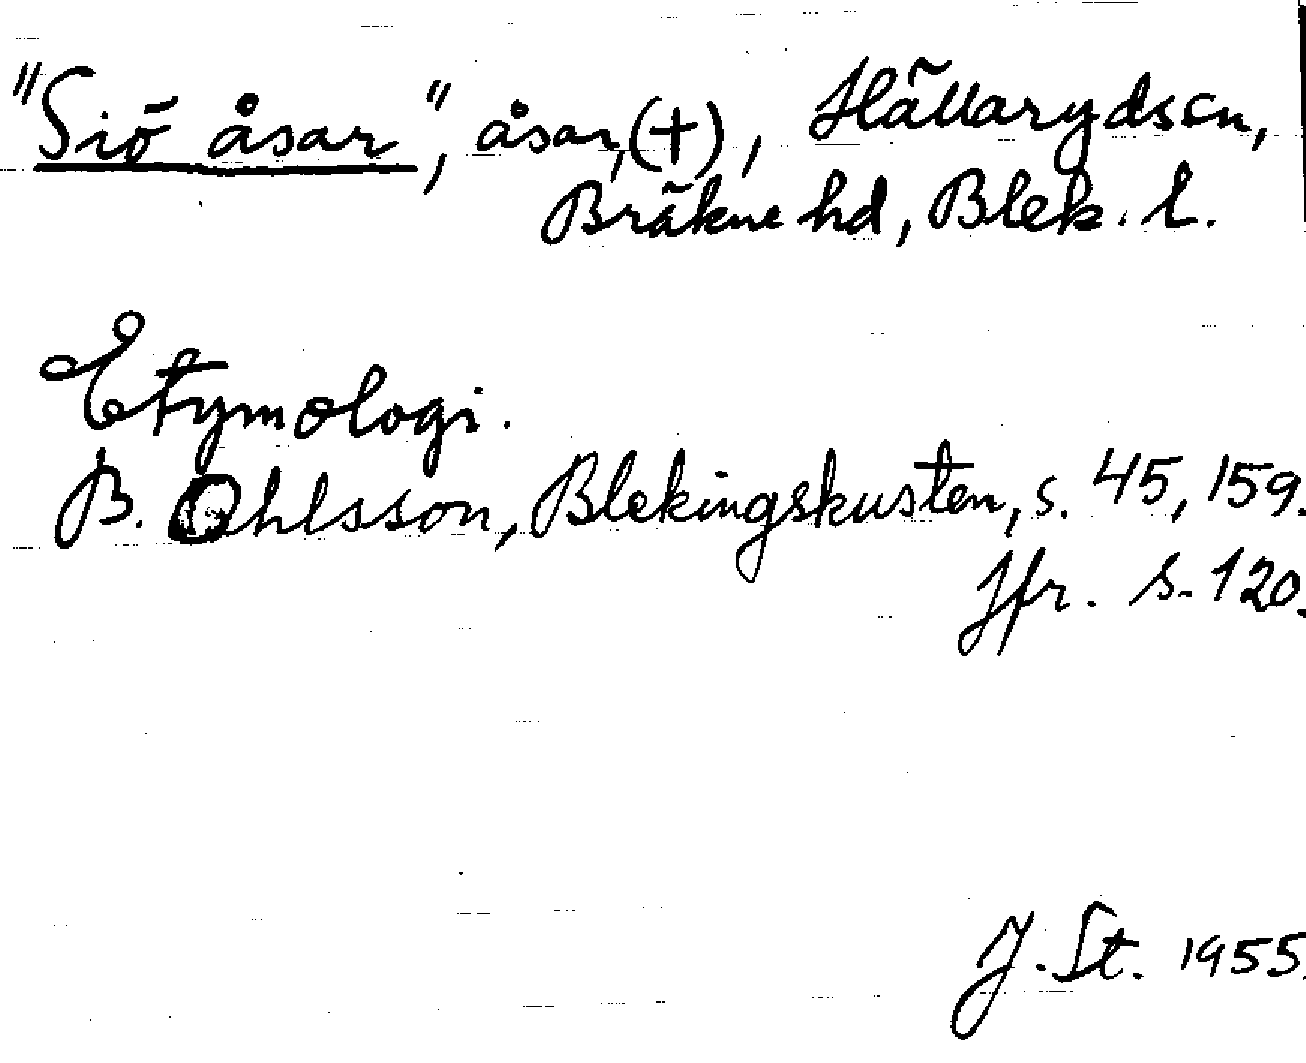 "Siö åsar", åsar, (+), Hällaryds sn,
Bräkne hd, Blek. l.
Etymologi.
B. Ohlsson, Blekingskusten, s. 45, 159.
Jfr. s. 120.
J. St. 1955.